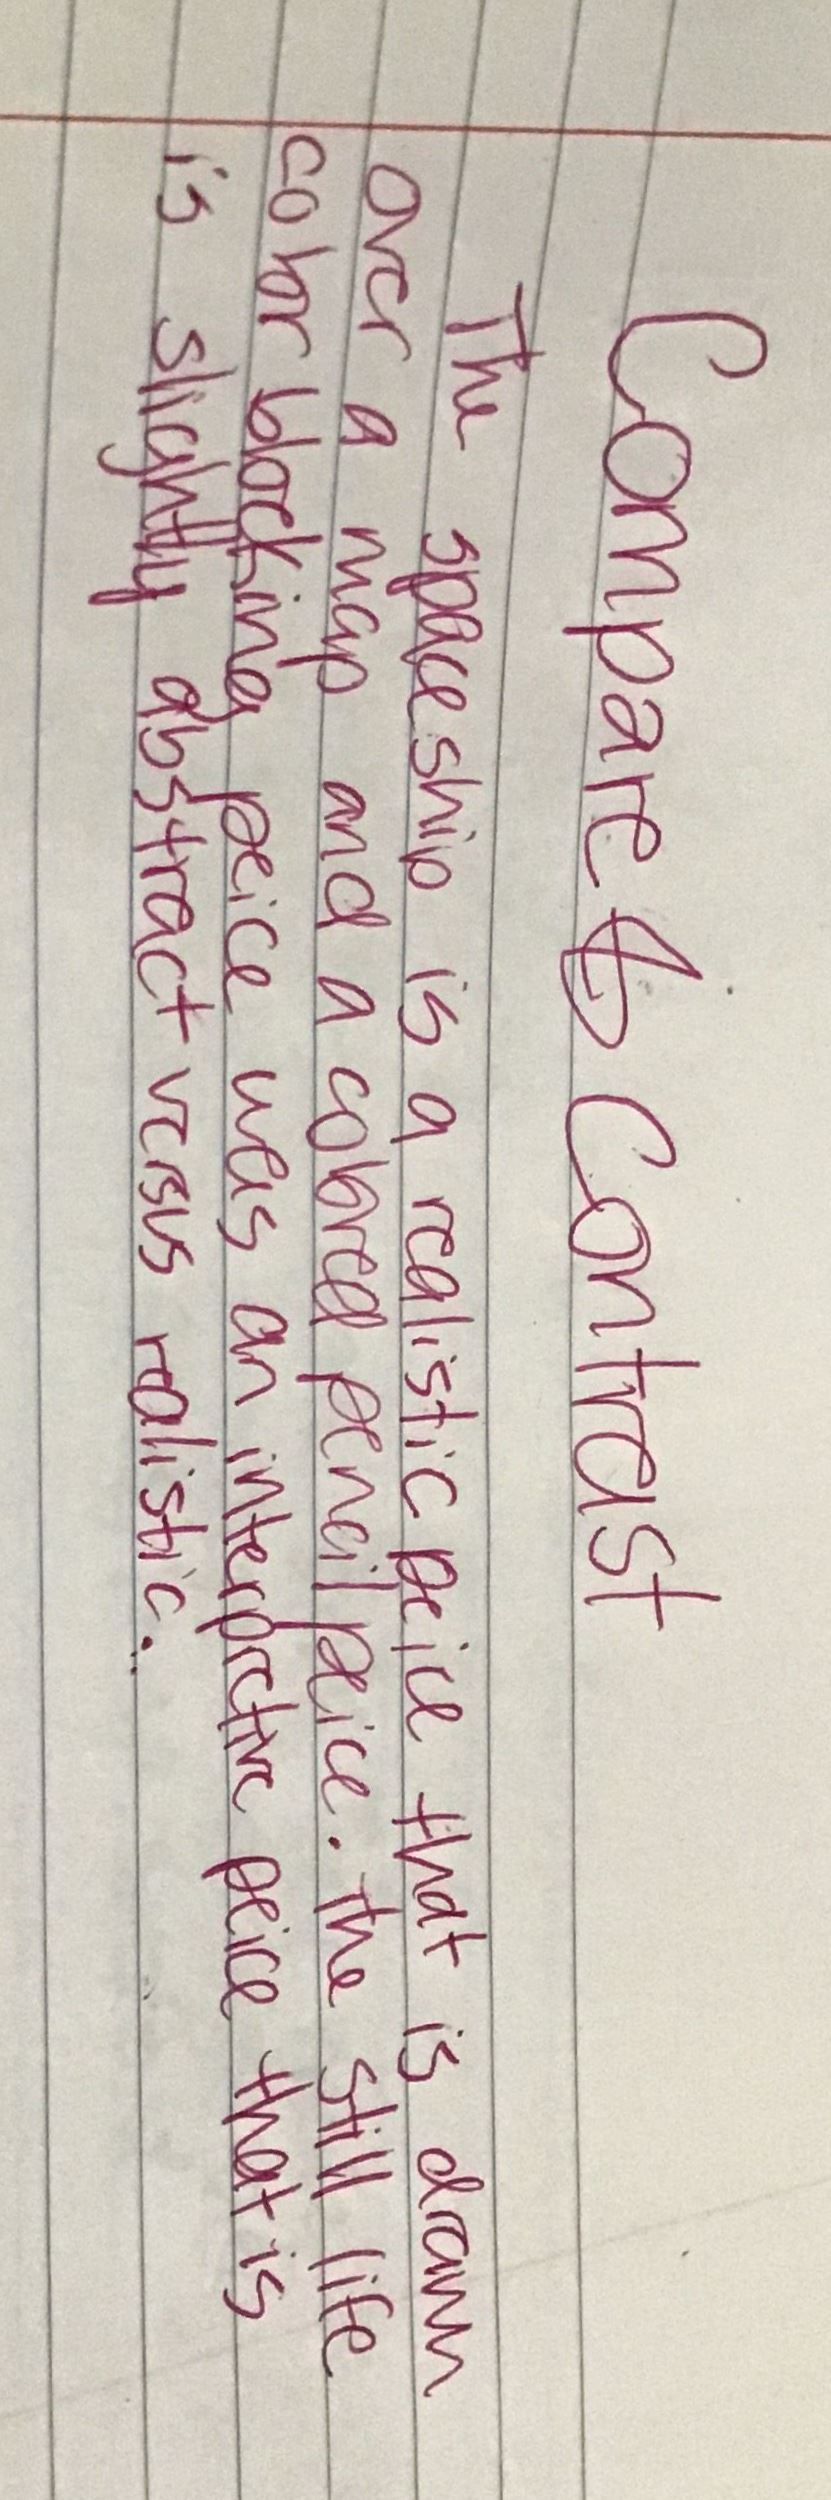 Compare & Contrast
The spaceship is a realistic peice that is drawn
over a map and a colored pencil peice. The still life
color blocking peice was an interpretive peice that is
is slightly abstract versus realistic.